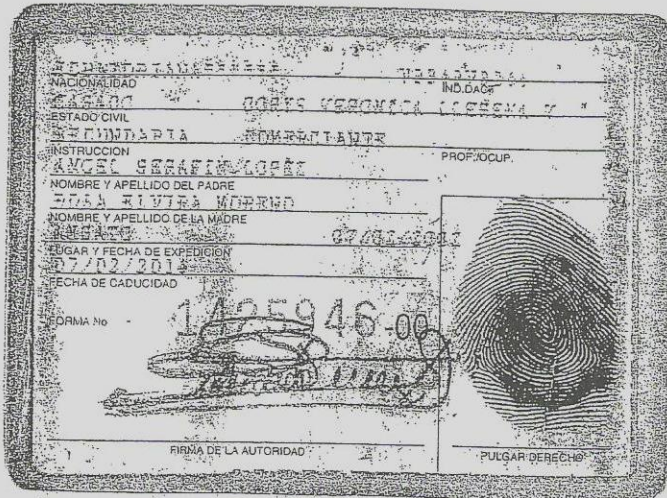 NACIONALIDAD IND.DAC.
CASADO DORYS VERONICA LLERENA V
ESTADO CIVIL
SECUNDARIA COMERCIANTE
INSTRUCCION PROF./OCUP.
ANGEL SERAFIN LOPEZ
NOMBRE Y APELLIDO DEL PADRE
ROSA ELVIRA MORENO
NOMBRE Y APELLIDO DE LA MADRE
AMBATO
LUGAR Y FECHA DE EXPEDICION
07/02/2014
FECHA DE CADUCIDAD
FORMA No 1425946-00
FIRMA DE LA AUTORIDAD PULGAR DERECHO